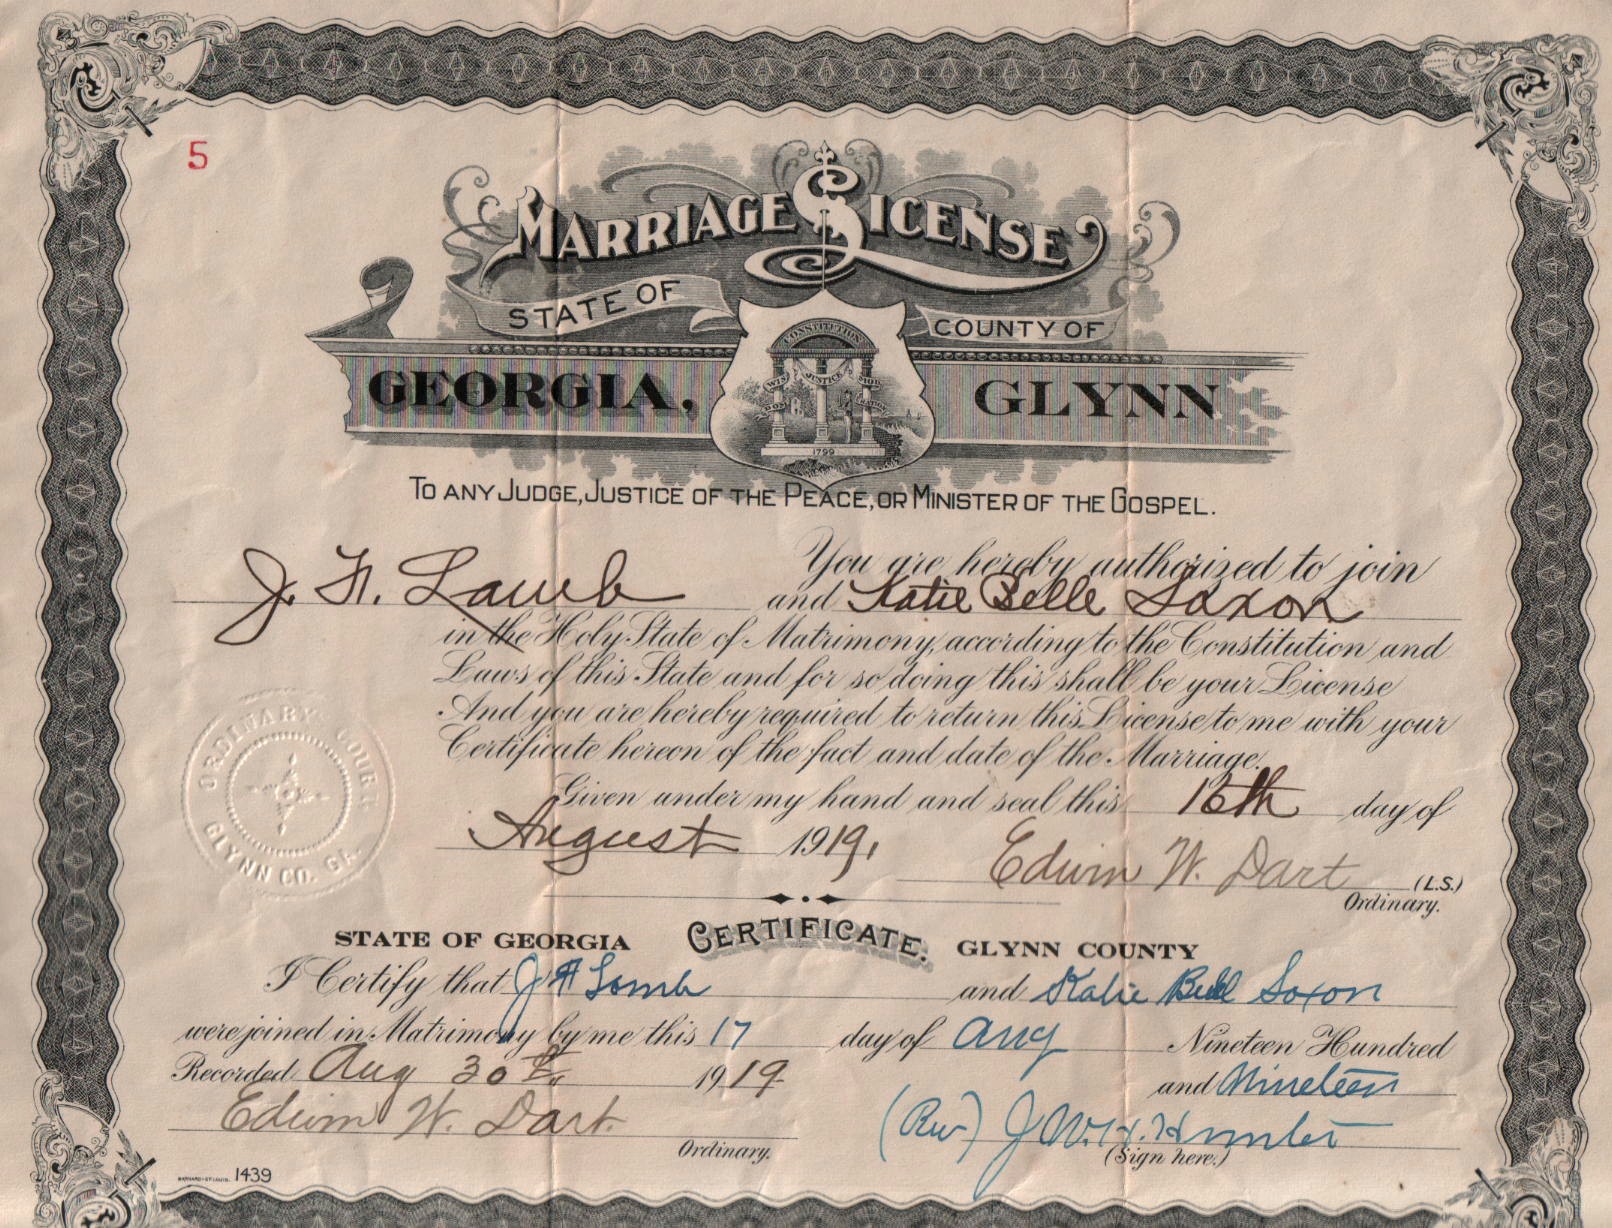 5
MARRIAGE LICENSE
STATE OF COUNTY OF
GEORGIA, GLYNN
CONSTITUTION
WIS JUSTICE MOD
1799
TO ANY JUDGE, JUSTICE OF THE PEACE, OR MINISTER OF THE GOSPEL.
You are hereby authorized to join
J. F. Lamb and Katie Belle Saxon
in the Holy State of Matrimony, according to the Constitution and
Laws of this State and for so doing this shall be your License
And you are hereby required to return this License to me with your
Certificate hereon of the fact and date of the Marriage.
Given under my hand and seal this 16th day of
August 1919.
Edwin W. Dart (L.S.)
Ordinary.
ORDINARY COURT
GLYNN CO. GA.
CERTIFICATE.
STATE OF GEORGIA GLYNN COUNTY
I Certify that J F Lamb and Katie Bell Saxon
were joined in Matrimony by me this 17 day of Aug Nineteen Hundred
Recorded Aug 30th 1919 and Nineteen
Edwin W. Dart. (Rev) J W. H. Hunter
Ordinary. (Sign here.)
BARNARD-ST LOUIS. 1439